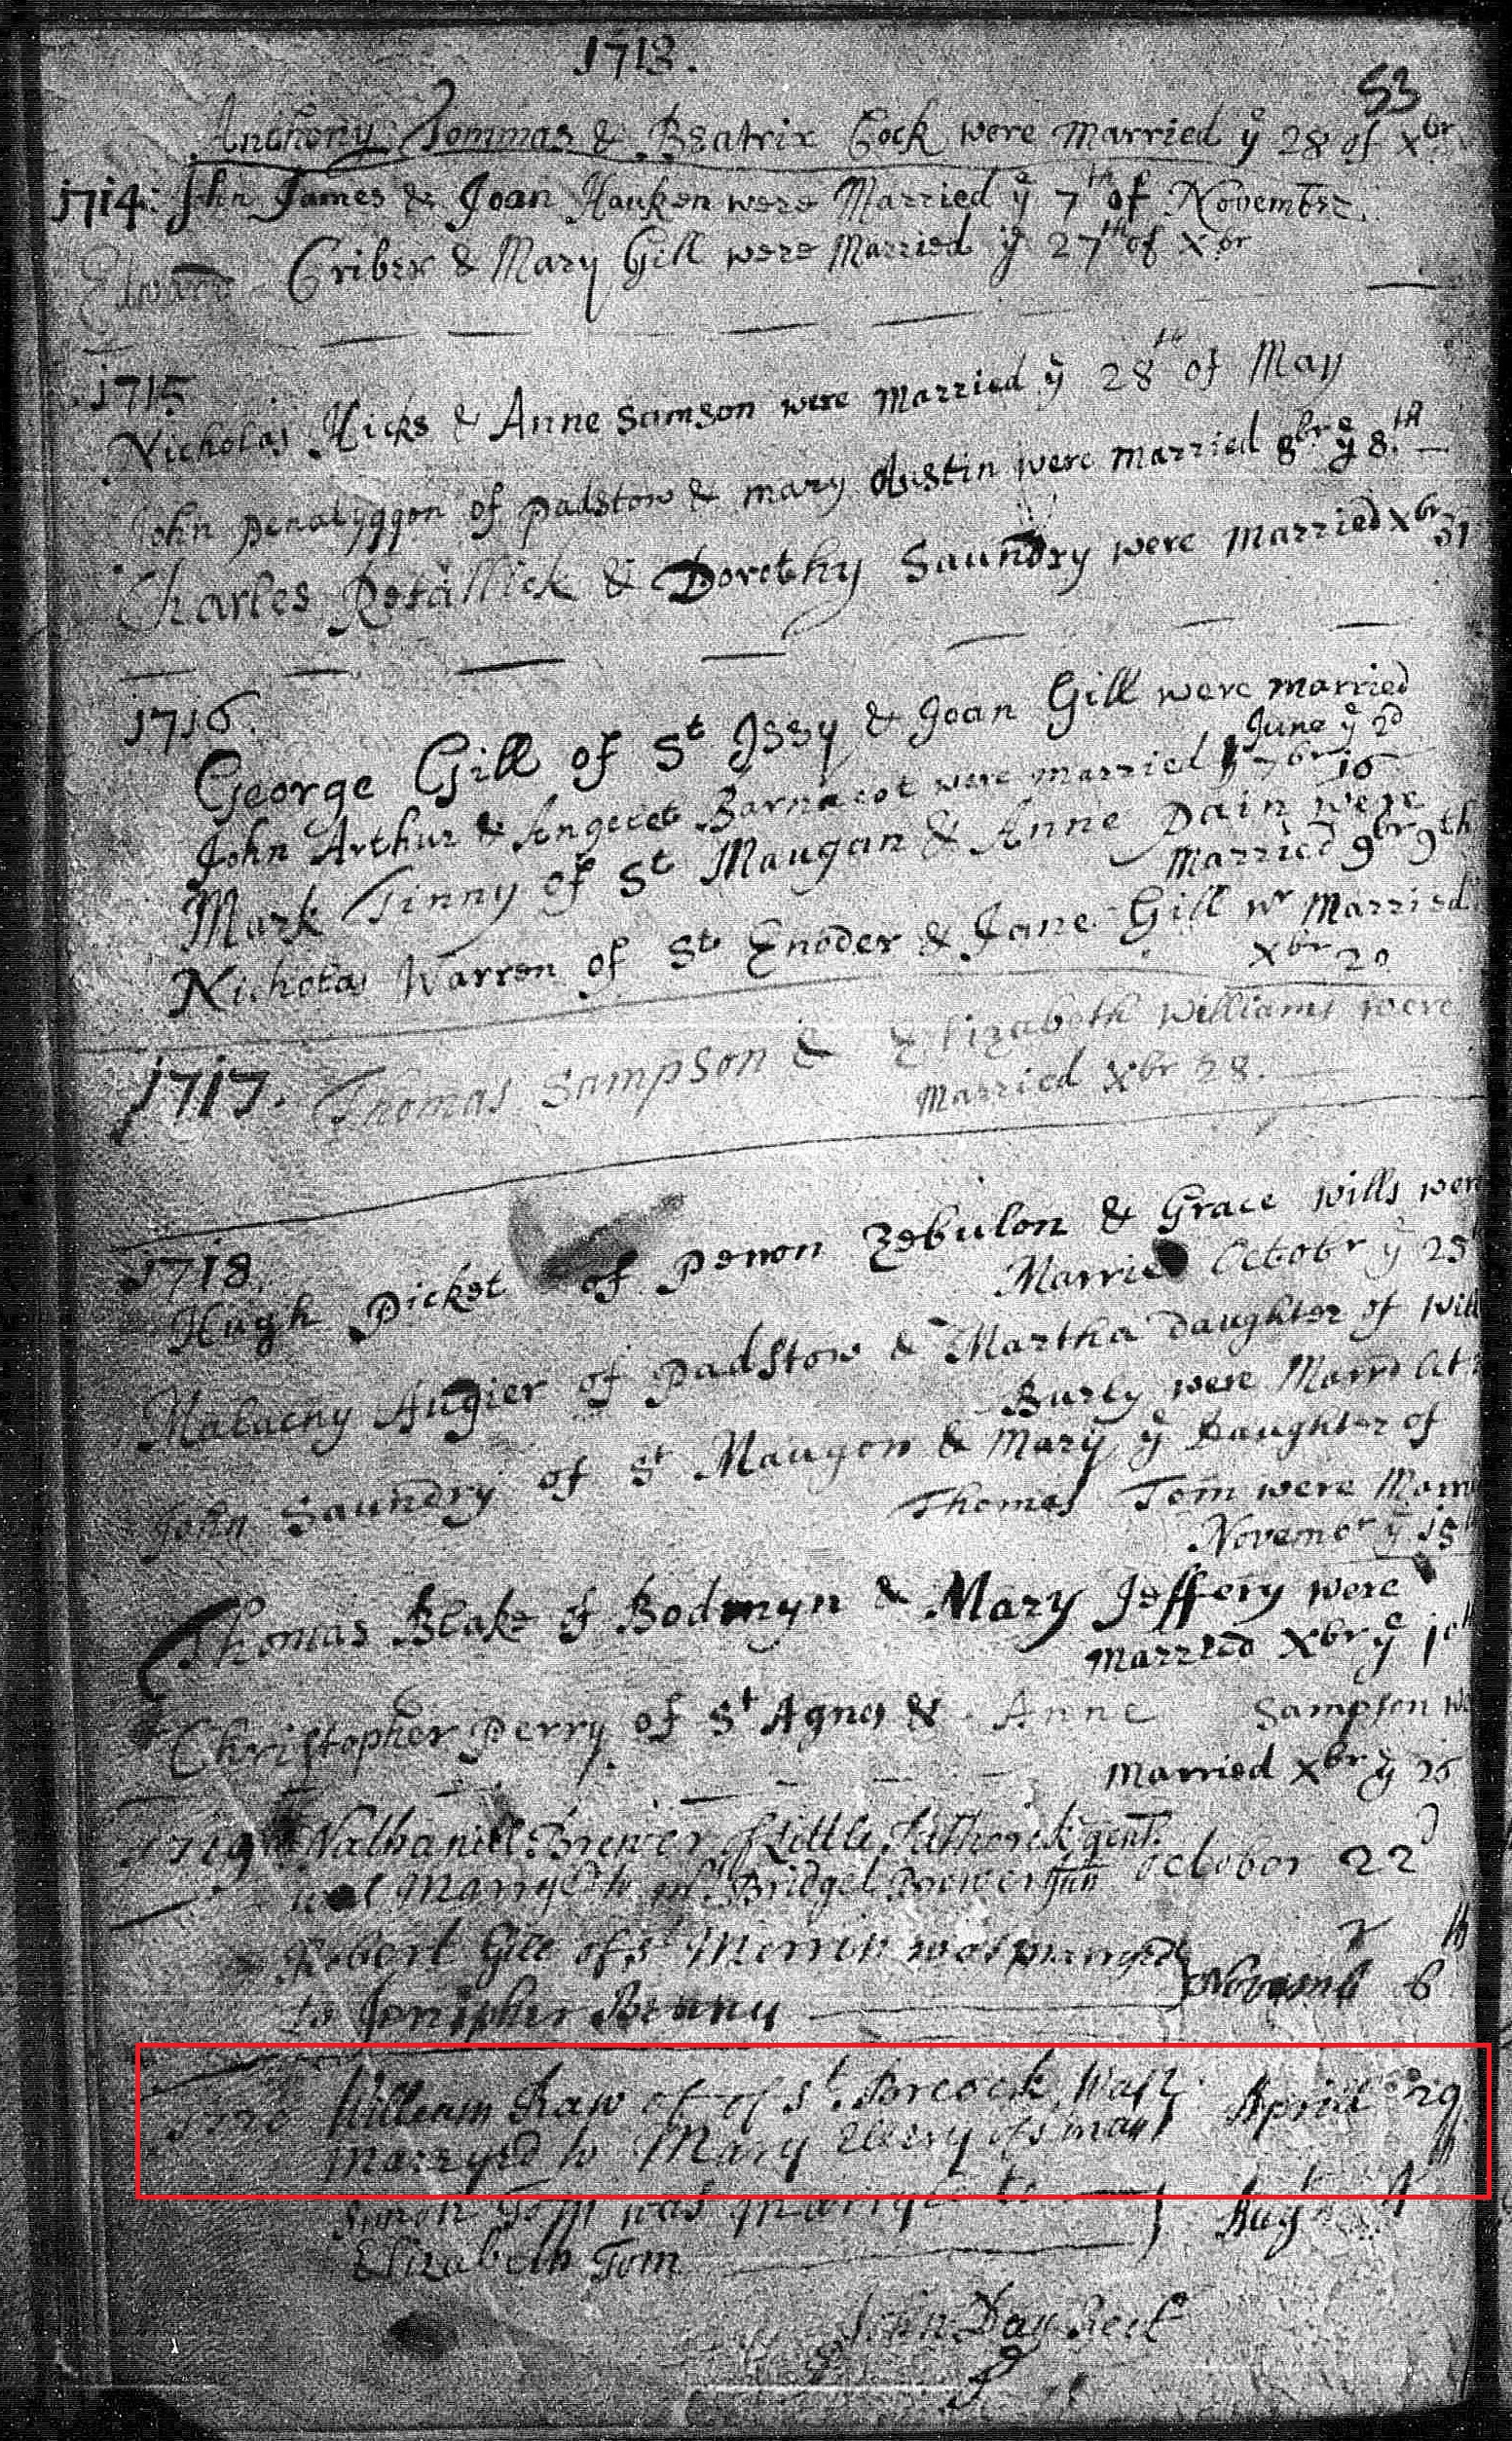 1713.
53
Anthony Tommas & Beatrix Cock were married yᵉ 28 of Xbr
1714: John James & Joan Hauken were Married yᵉ 7th of November.
Edward Criber & Mary Gill were Married yᵉ 27th of Xbr
1715
Nicholas Hicks & Anne Samson were married yᵉ 28th of May
John penalyggon of padstow & mary Austin were married 8br yᵉ 8.th
Charles Retallick & Dorothy Saundry were married Xbr 31
1716.
George Gill of St Issy & Joan Gill were married
June yᵉ 2d
John Arthur & Angelet Barnacot were married yᵉ 7br 16
Mark Tinny of St Maugan & Anne Dain were
Married 9br 9th
Nicholas Warren of St Enoder & Jane Gill wr Married
Xbr 20
1717. Thomas Sampson & Elizabeth Williams were
Married Xbr 28.
1718.
Hugh Picket of Penon Zebulon & Grace Wills wer
Married Octobr yᵉ 25
Malachy Augier of Padstow & Martha Daughter of Will
Burly were Marrd
John Saundry of St Maugon & Mary yᵉ Daughter of
Thomas Tom were Marr
Novembr yᵉ 15th
Thomas Blake of Bodmyn & Mary Jeffery were
Married Xbr yᵉ
Christopher Perry of St Agnes & Anne Sampson we
Married Xbr yᵉ 26
1719 Nathaniell Brewer of Little Petherick gent.
was Marryed to Bridget Brewer October 22d
Robert Gill of St Merrin was marryed
to Jenipher Benny Novembr 6th
1720 William Raw of of St Breock Was
marryed to Mary Ellery April 29th
Simon Tom was marryed to
Elizabeth Tom Augt 4
John Day Rectr